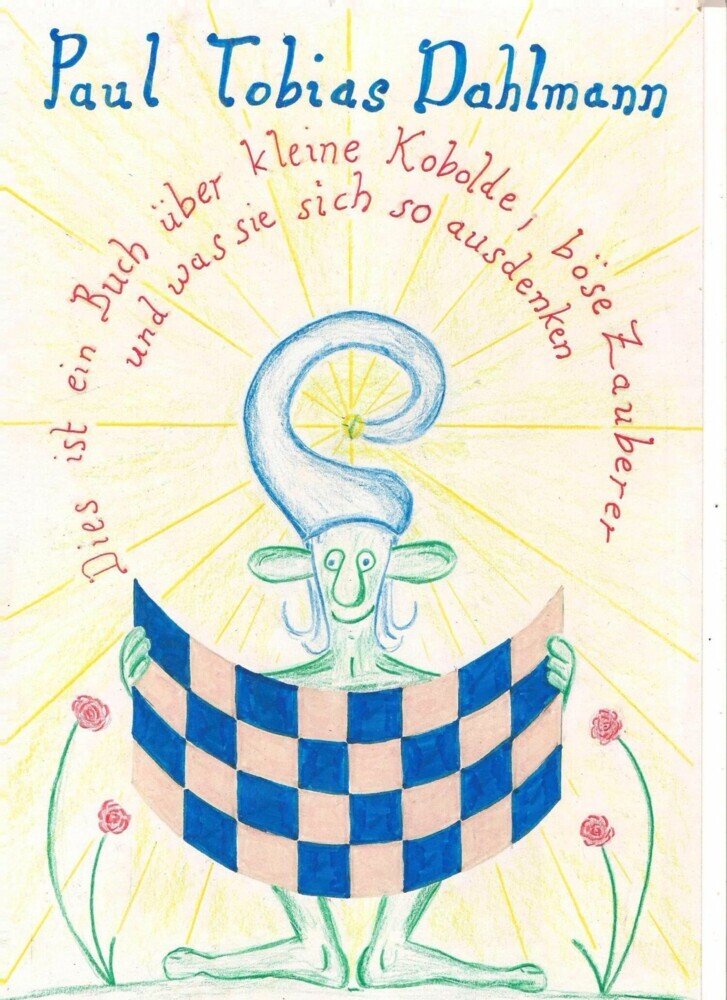 Paul Tobias Dahlmann
Dies ist ein Buch über kleine Kobolde, böse Zauberer
und was sie sich so ausdenken